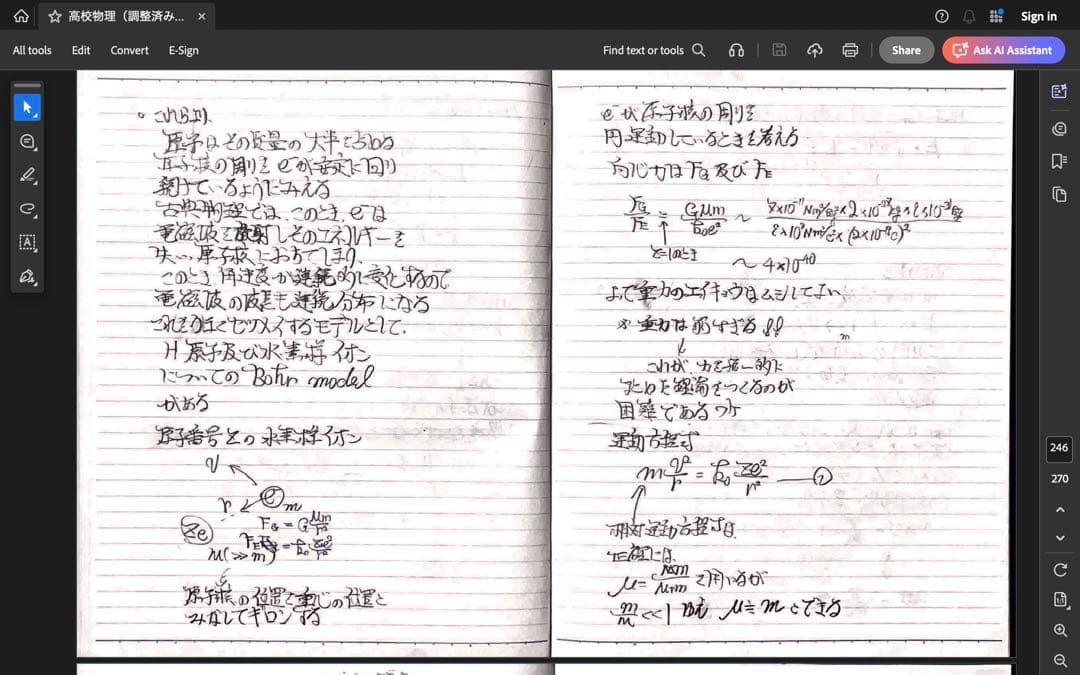 高校物理（調整済み...
Sign in
All tools
Edit
Convert
E-Sign
Find text or tools
Share
Ask AI Assistant
。これらより、
原子はその質量の大半を占める
原子核の周りを e⁻が安定に回り
続けているようにみえる
古典物理では、このとき、e⁻は
電磁波を放射しそのエネルギーを
失い、原子核におちてしまり、
このとき、角速度が連続的に変化するので
電磁波の波長も連続分布になる
これをうまくセツメイするモデルとして、
H原子及び水素様イオン
についての Bohr model
がある
原子番号Zの水素様イオン
v
r
e
m
Ze
F_G = G Mm/r²
F_E = k₀ Ze²/r²
M(≫m)
原子核の位置を重心の位置と
みなしてギロンする
e⁻が原子核の周りを
円運動しているときを考える
向心力は F_G 及び F_E
F_G/F_E = GMm/k₀e² ~
Z=1のとき
~ 4×10⁻⁴⁰
よって重力のエイキョウはムシしてよい
※重力は弱すぎる!!
m
これが力を統一的に
困難であるワケ
運動方程式
m v²/r = k₀ Ze²/r² ―②
相対運動方程式は
正確には、
μ = Mm/M+m を用いるが
m/M <<1 ゆえ μ≒m とできる
246
270